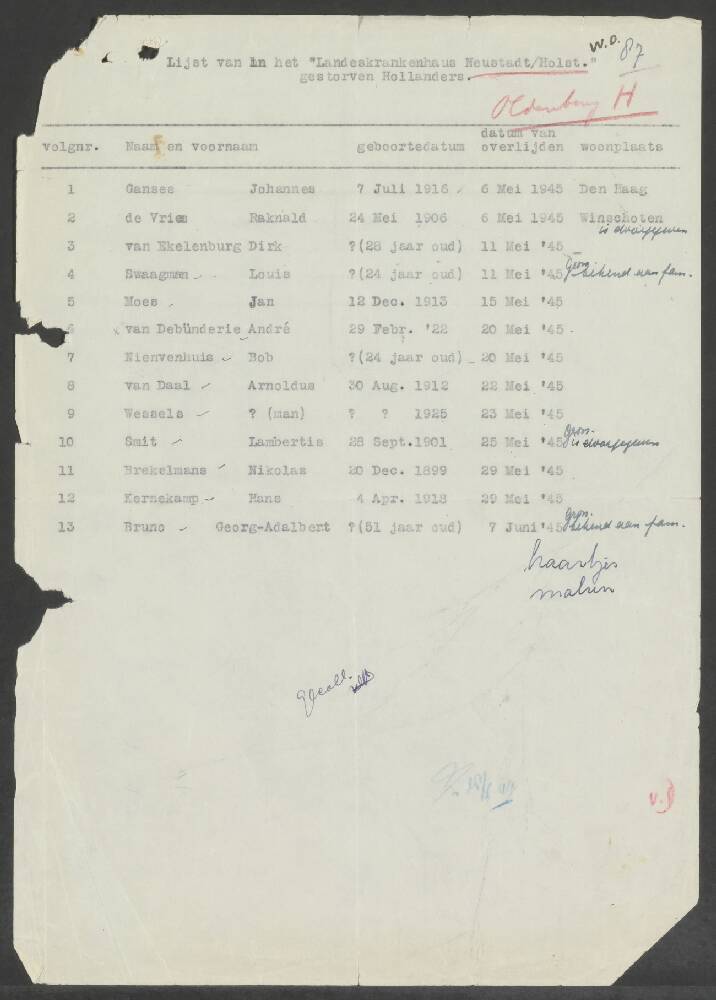 W.O. 87
Lijst van in het "Landeskrankenhaus Neustadt/Holst."
gestorven Hollanders.
Oldenburg H
volgnr. Naam en voornaam geboortedatum datum van overlijden woonplaats
1 Ganses Johannes 7 Juli 1916 6 Mei 1945 Den Haag
2 de Vries Raknald 24 Mei 1906 6 Mei 1945 Winschoten
is doorgegeven
3 van Ekelenburg Dirk ?(28 jaar oud) 11 Mei '45
4 Swaagman Louis ?(24 jaar oud) 11 Mei '45 bekend aan fam.
5 Moes Jan 12 Dec. 1913 15 Mei '45
6 van Debünderie André 29 Febr. '22 20 Mei '45
7 Nienvenhuis Bob ?(24 jaar oud) 20 Mei '45
8 van Daal Arnoldus 30 Aug. 1912 22 Mei '45
9 Wessels ? (man) ? ? 1925 23 Mei '45
10 Smit Lambertis 28 Sept.1901 25 Mei '45 is doorgegeven
11 Brekelmans Nikolas 20 Dec. 1899 29 Mei '45
12 Kernekamp Hans 4 Apr. 1918 29 Mei '45
13 Bruno Georg-Adalbert ?(51 jaar oud) 7 Juni '45 bekend aan fam.
kaartjes
maken